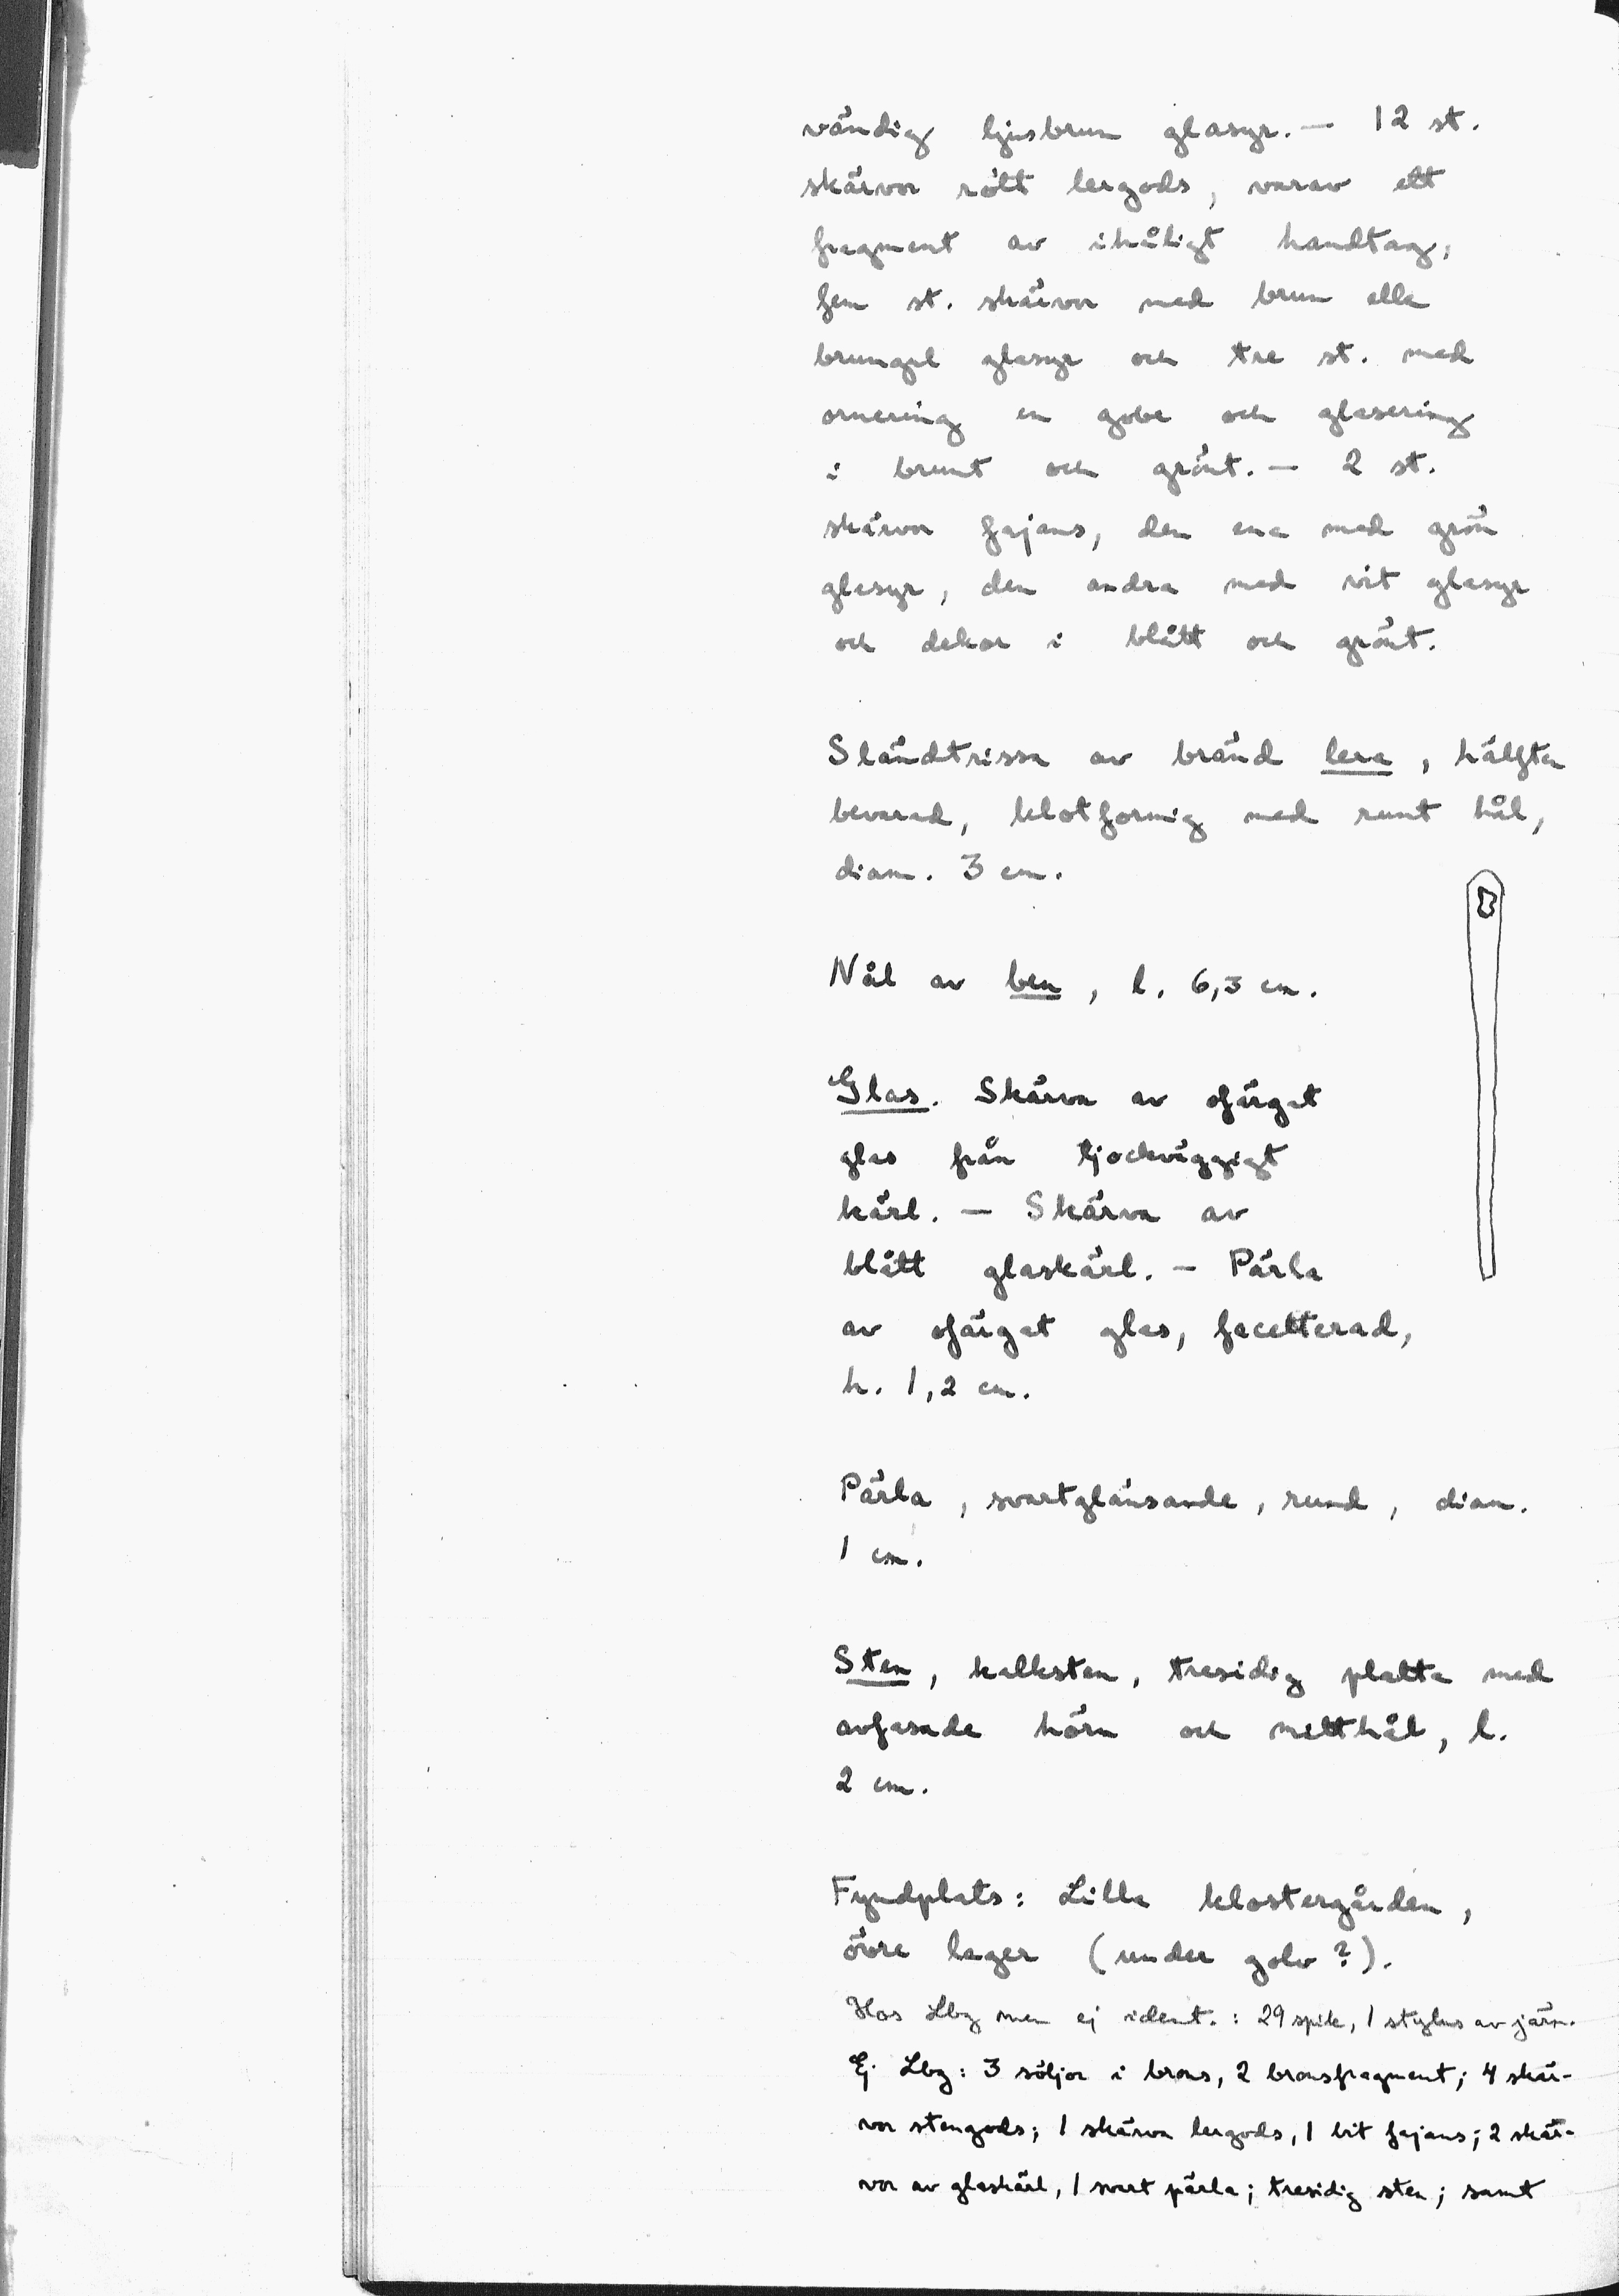 vändig ljusbrun glasyr. — 12 st.
skärvor rött lergods, varav ett
fragment av ihåligt handtag,
fem st. skärvor med brun eller
brungul glasyr och tre st. med
ornering en gobe och glasering
i brunt och grönt. — 2 st.
skärvor fajans, den ena med grön
glasyr, den andra med vit glasyr
och dekor i blått och grönt.
Sländtrissa av bränd lera, hälften
bevarad, klotformig med runt hål,
diam. 3 cm.
Nål av ben, l. 6,3 cm.
Glas. Skärva av ofärgat
glas från tjockväggigt
kärl. — Skärva av
blått glaskärl. — Pärla
av ofärgat glas, facetterad,
h. 1,2 cm.
Pärla, svartglänsande, rund, diam.
1 cm.
Sten, kalksten, tresidig platta med
avfasade hörn och mitthål, l.
2 cm.
Fyndplats: Lilla klostergården,
övre lager (under golv?).
Hos Lbg men ej ident.: 29 spik, 1 stylus av järn.
Ej Lbg: 3 söljor i brons, 2 bronsfragment; 4 skär-
vor stengods; 1 skärva lergods, 1 bit fajans; 2 skär-
vor av glaskärl, 1 svart pärla; tresidig sten; samt